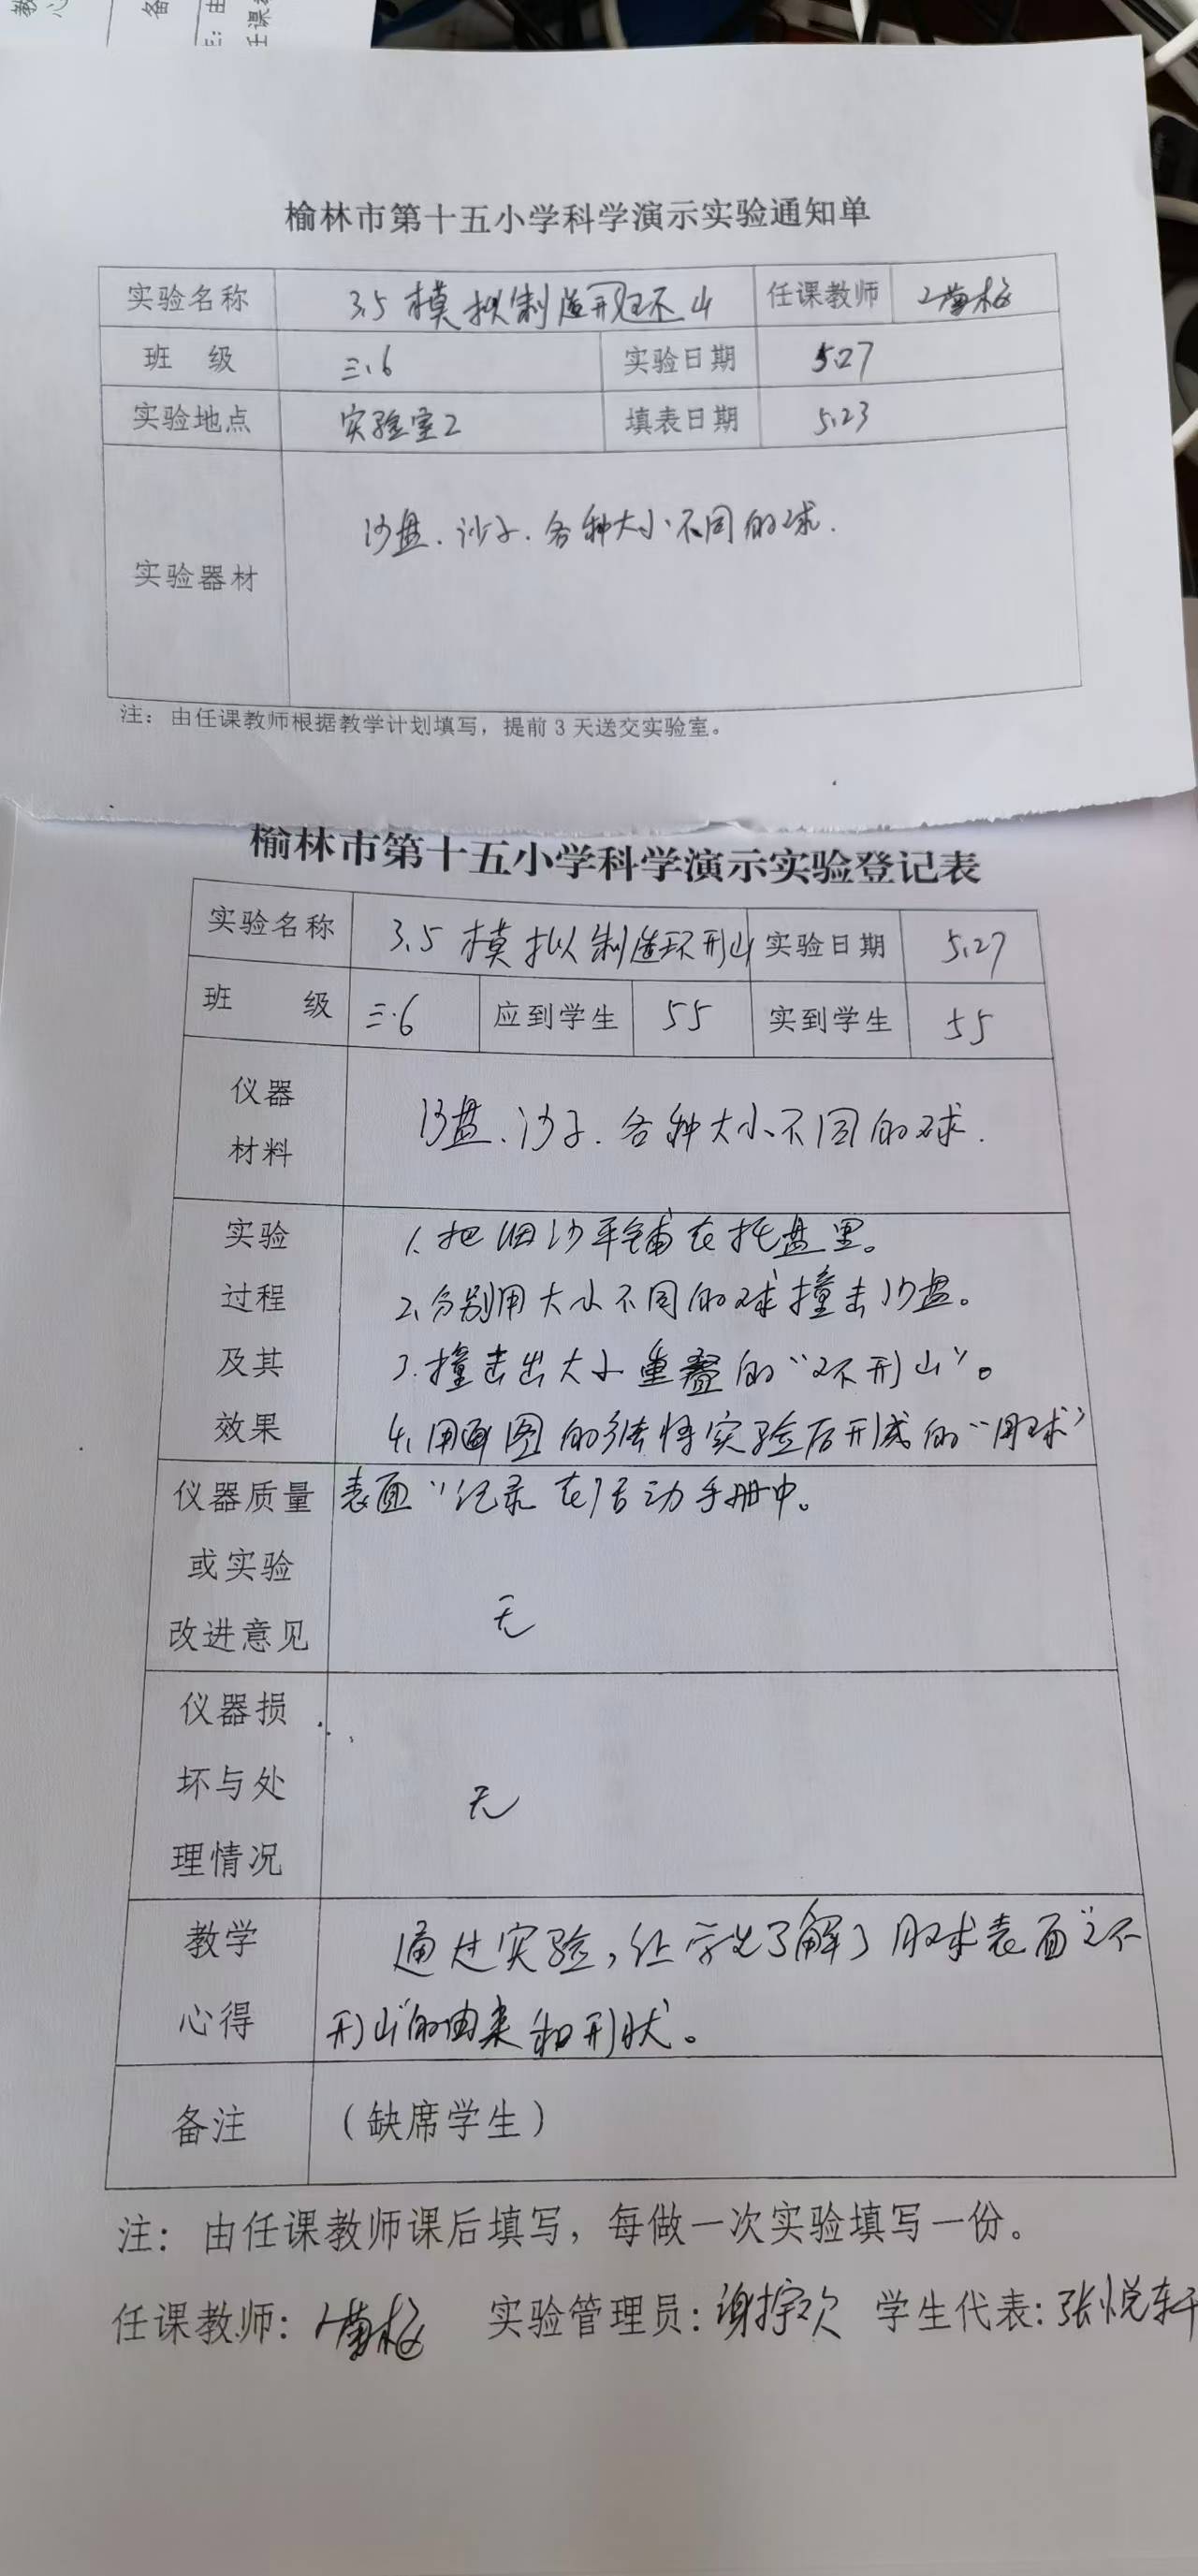 榆林市第十五小学科学演示实验通知单
实验名称 3.5 模拟制造形环山 任课教师
班 级 三.6 实验日期 5.27
实验地点 实验室2 填表日期 5.23
实验器材 沙盘、沙子、各种大小不同的球.
注：由任课教师根据教学计划填写，提前3天送交实验室。
榆林市第十五小学科学演示实验登记表
实验名称 3.5 模拟制造环形山 实验日期 5.27
班 级 三.6 应到学生 55 实到学生 55
仪器材料 沙盘、沙子、各种大小不同的球.
实验过程及其效果
1、把细沙平铺在托盘里。
2、分别用大小不同的球撞击沙盘。
3、撞击出大小重叠的“环形山”。
4、用画图的方法将实验后形成的“月球
表面”记录在活动手册中。
仪器质量或实验改进意见 无
仪器损坏与处理情况 无
教学心得 通过实验，让学生了解了月球表面“环
形山”的由来和形状。
备注 （缺席学生）
注：由任课教师课后填写，每做一次实验填写一份。
任课教师： 实验管理员：谢 学生代表：张悦轩